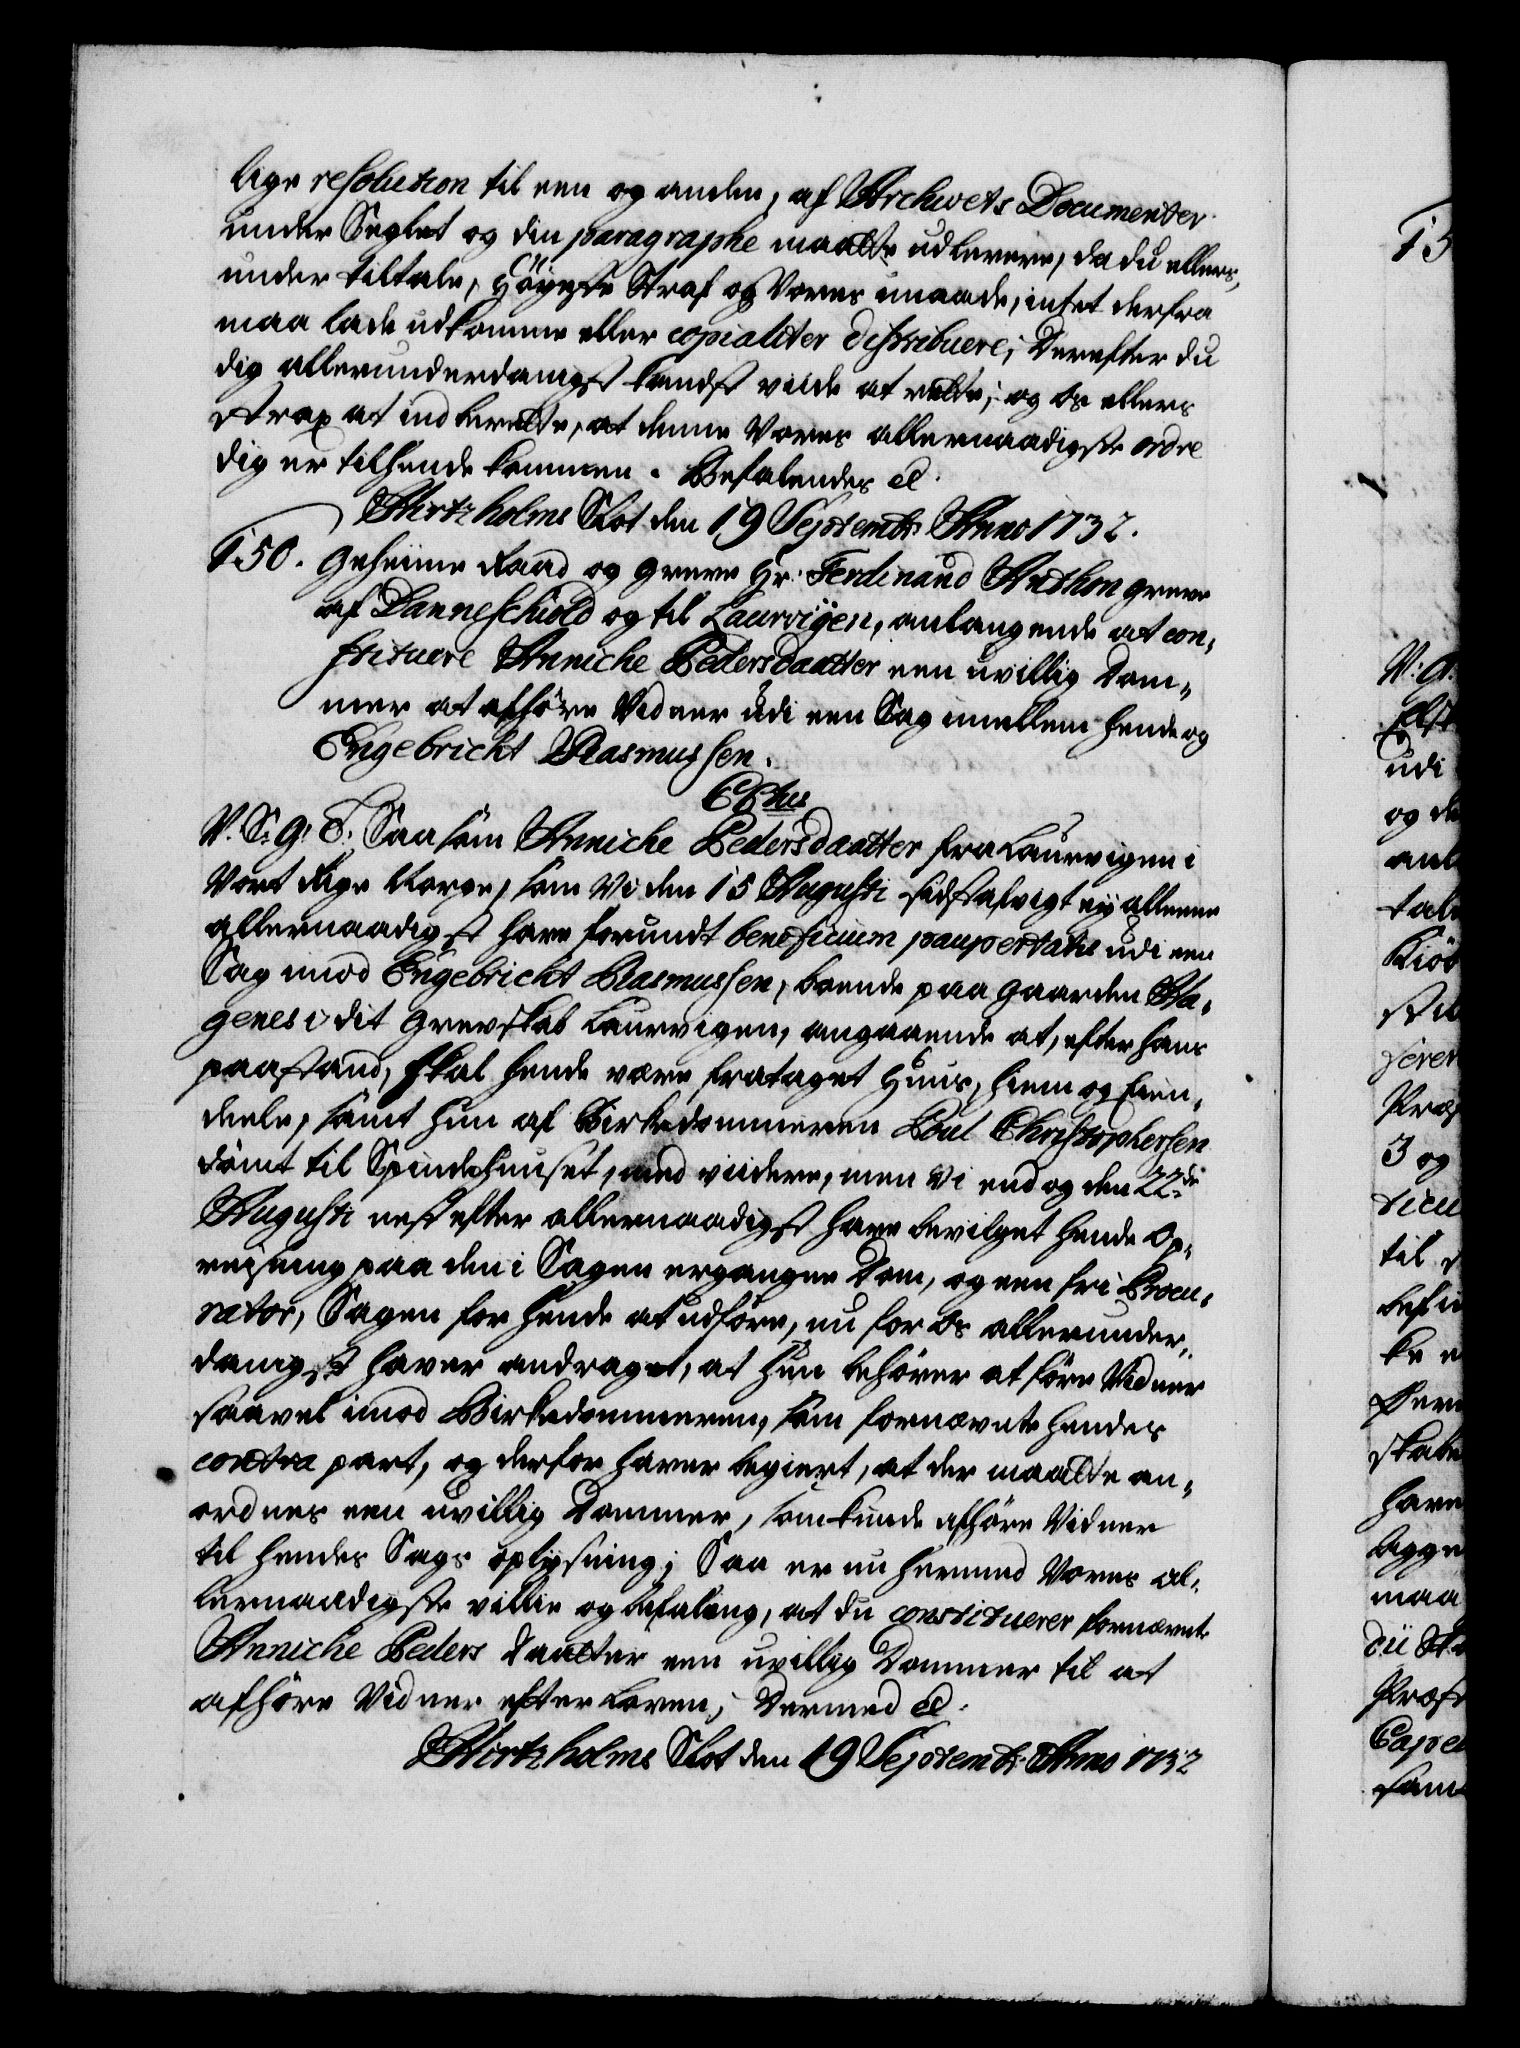 lige resolution til een og anden, af Archivets Documenter
under Seglet og din paragraphe maatte udlevere, da du ellers,
under tiltale, Höyeste Straf og Vores unaade, intet derfra
maa lade udkomme eller copialiter distribuere; Derefter du
dig allerunderdanigst kandst viide at rette; og os ellers
strax at indberette, at denne Vores allernaadigste ordre
dig er tilhende kommen. Befalendes &.
Hirtzholms Slot den 19 Septembr: Anno 1732.
150. Geheime Raad og Greve Hr: Ferdinand Anthon Greve
af Danneschiold og til Laurvigen, anlangende at con-
stituere Anniche Pedersdaatter een uvillig Dom-
mer at afhöre Vidner udi een Sag imellem hende og
Engebricht Rasmussen.
C 6tus
V. S. G. T. Saasom Anniche Pedersdaatter fra Laurvigen i
Vort Rige Norge, som Vi den 15 Augusti sidst afvigt ey alleene
allernaadigst have forundt beneficium paupertatis udi een
Sag imod Engebricht Rasmussen, boende paa Gaarden Ha-
genes i dit Grevskab Laurvigen, angaaende at, efter hans
paastand, skal hende være frataget Huus, hiem og Eien-
deele, samt hun af Birkedommeren Poul Christophersen
dömt til Spindehuuset, med viidere, men Vi end og den 22de
Augusti nest efter allernaadigst have bevilget hende Op-
reisning paa den i Sagen ergangne Dom, og een fri Procu-
rator, Sagen for hende at udföre, nu for os allerunder-
danigst haver andraget, at hun behöver at före Vidner
saavel imod Birkedommeren, som fornævnte hendes
contra part, og derfor haver begiert, at der maatte an-
ordnes een uvillig Dommer, som kunde afhöre Vidner
til hendes Sags oplysning; Saa er nu hermed Vores al-
lernaadigste villie og befaling, at du constituerer fornævnte
Anniche Peders Daatter een uvillig Dommer til at
afhöre Vidner efter Loven; Dermed &.
Hirtzholms Slot den 19 Septembr: Anno 1732